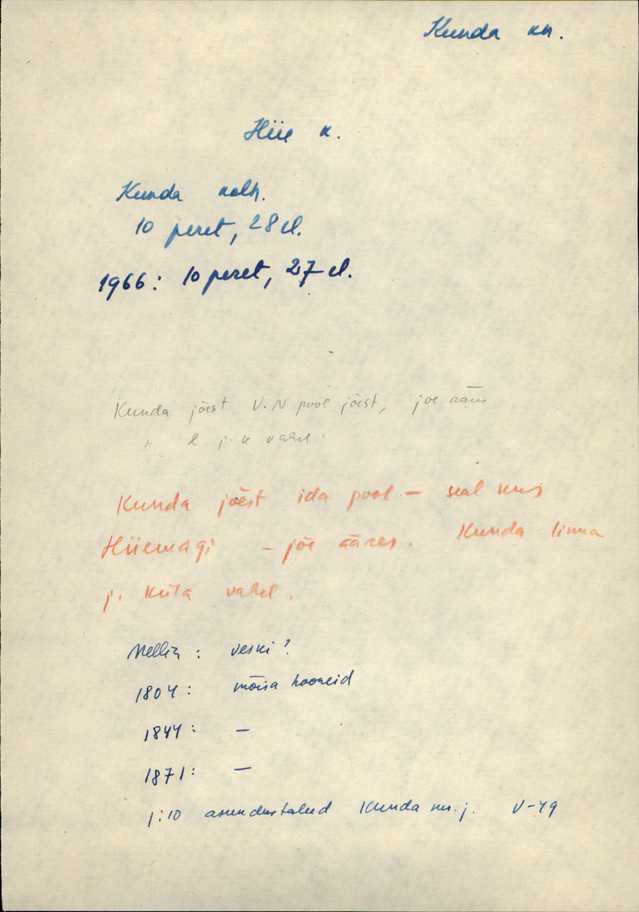 Kunda kn.
Hiie k.
Kunda kolh.
10 peret, 28 el.
1966: 10 peret, 27 el.
Kunda jõest V.N pool jõest, jõe ääres
l. j. k vahel.
Kunda jõest ida pool – seal kus
Hiiemägi – jõe ääres. Kunda linna
j. küla vahel.
Mellin: veski?
1804: mõisa hooneid
1844: –
1871: –
1:10 asundustalud Kunda V-49